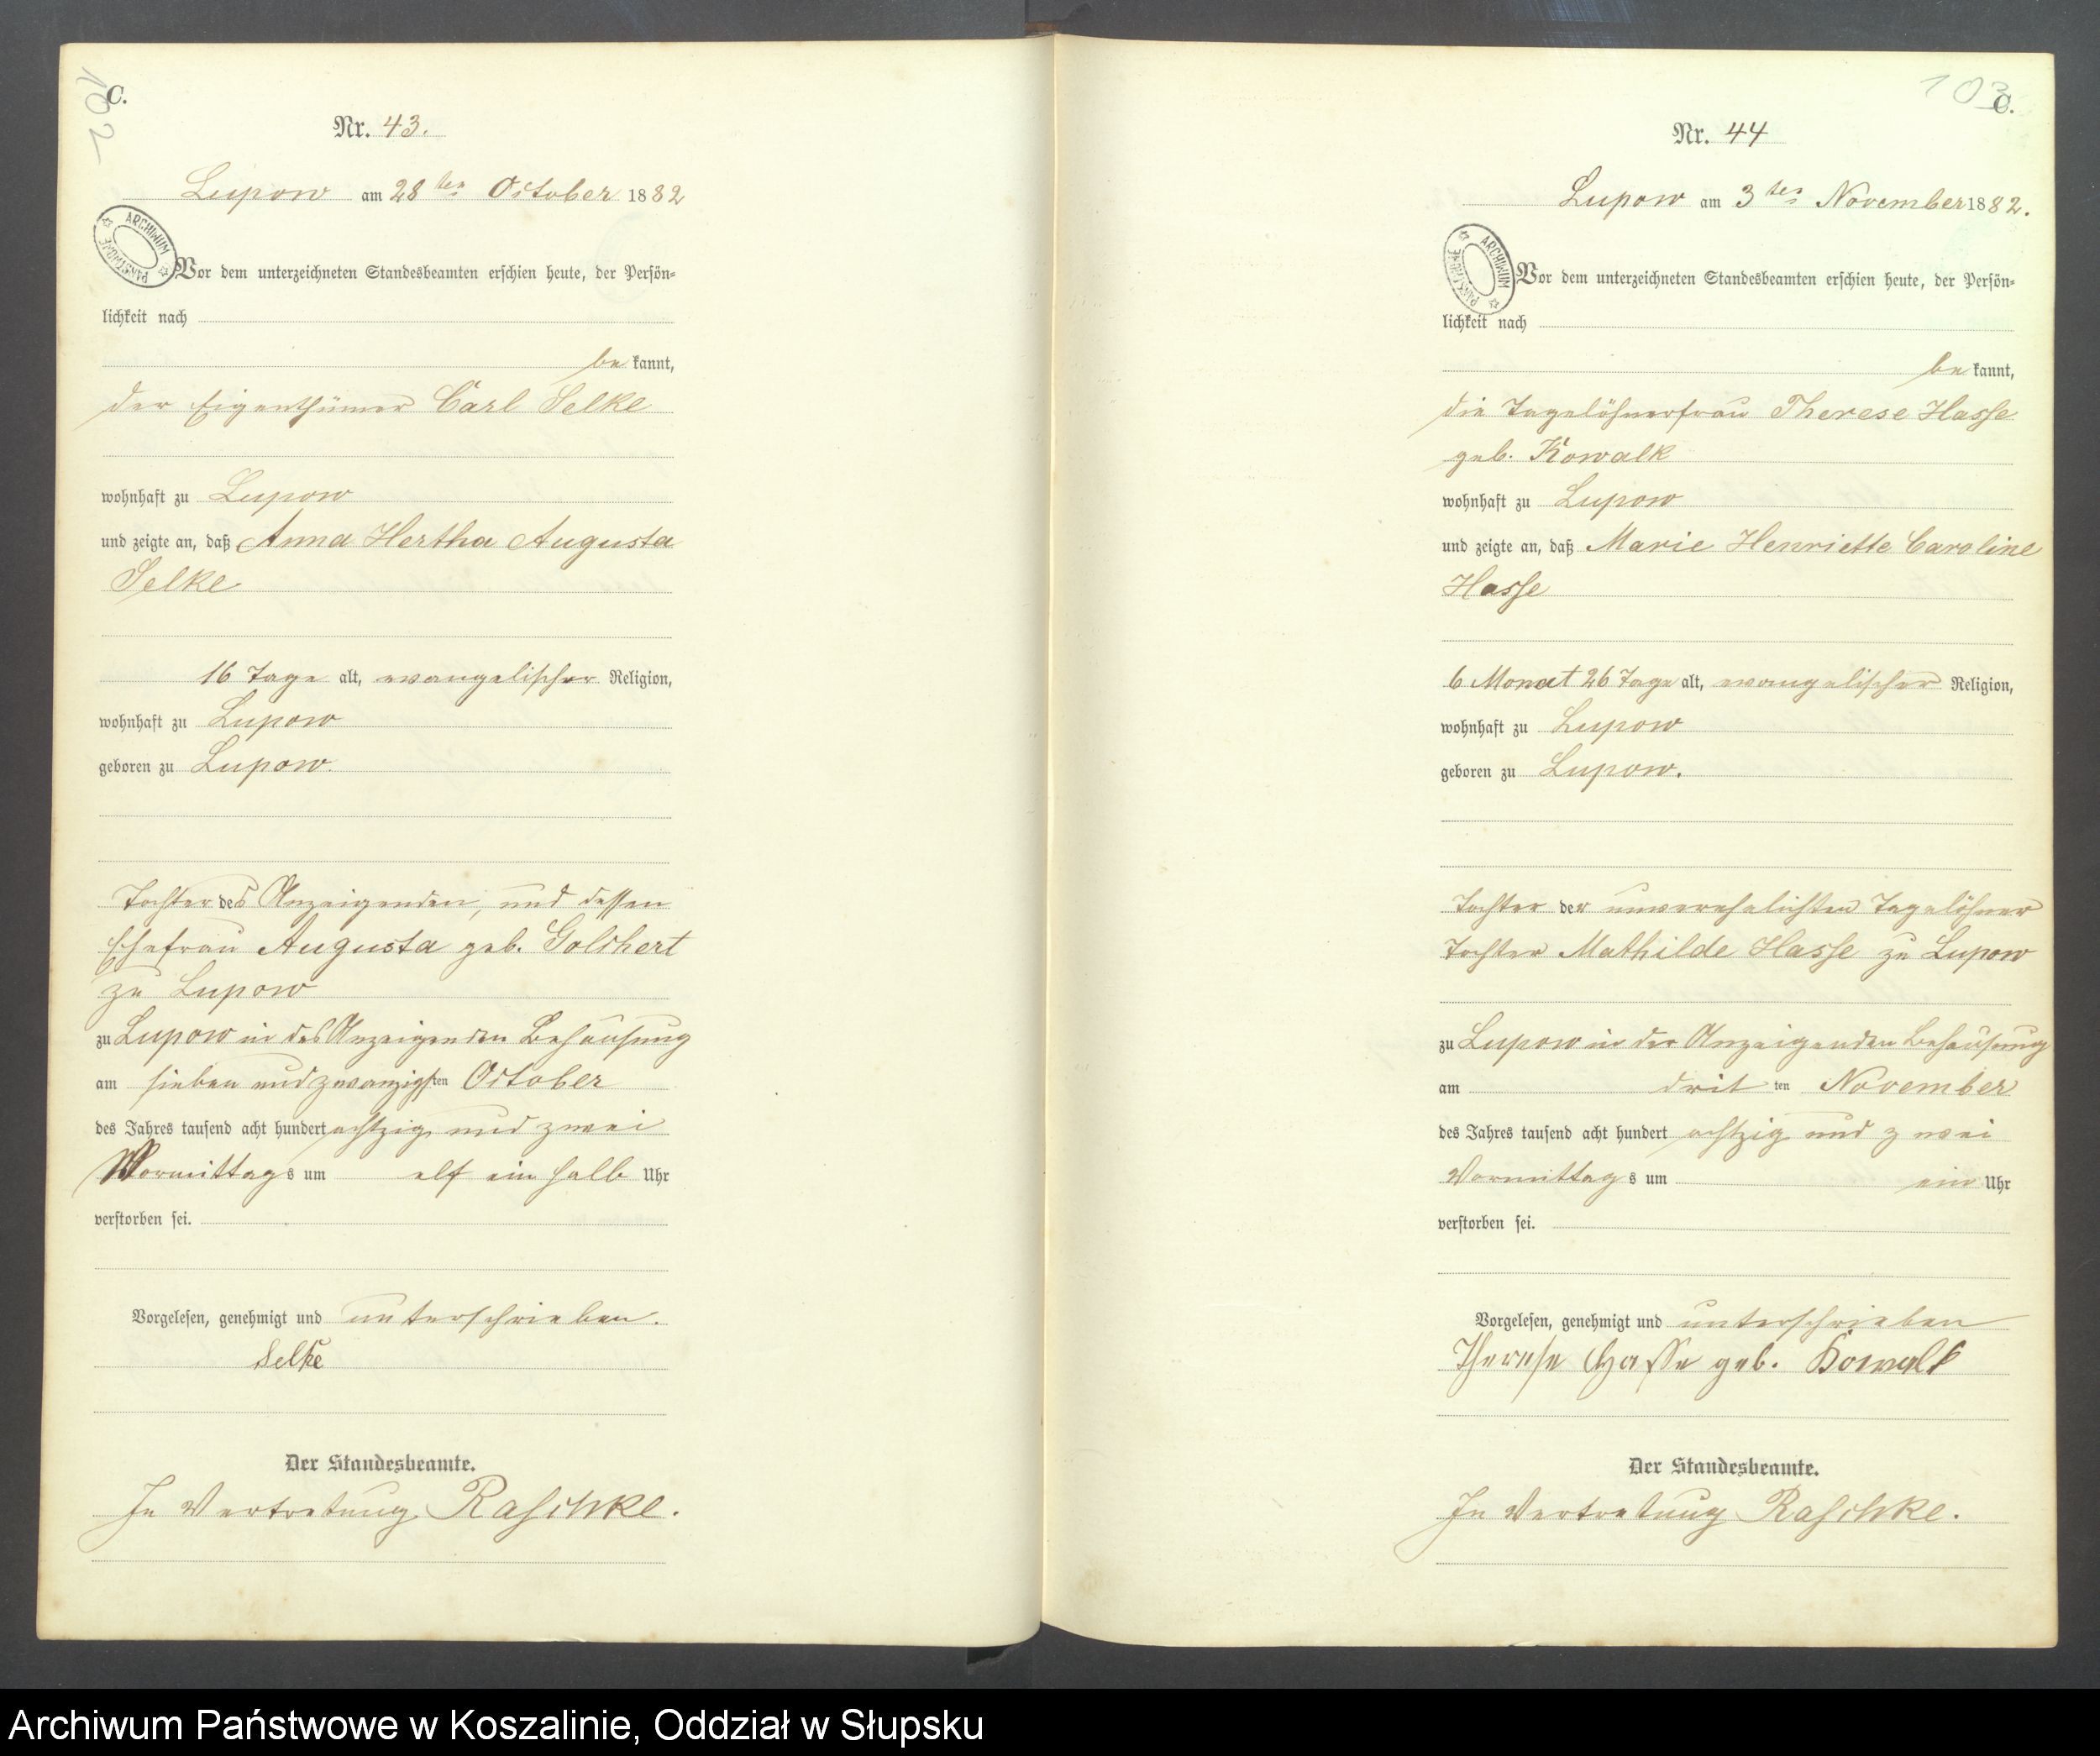 102
C.
Nr. 43.
Lupow am 28ten October 1882
ARCHIWUM PAŃSTWOWE
Vor dem unterzeichneten Standesbeamten erschien heute, der Persön-
lichkeit nach
bekannt,
der Eigenthümer Carl Selke
wohnhaft zu Lupow
und zeigte an, daß Anna Hertha Augusta
Selke
16 Tage alt, evangelischer Religion,
wohnhaft zu Lupow
geboren zu Lupow.
Tochter des Anzeigenden, und dessen
Ehefrau Augusta geb. Golchert
zu Lupow
zu Lupow in des Anzeigenden Behausung
am sieben und zwanzigsten October
des Jahres tausend acht hundert achtzig und zwei
Vormittags um elf ein halb Uhr
verstorben sei.
Vorgelesen, genehmigt und unterschrieben.
Selke
Der Standesbeamte.
In Vertretung Raschke.
103
C.
Nr. 44
Lupow am 3ten November 1882.
ARCHIWUM PAŃSTWOWE
Vor dem unterzeichneten Standesbeamten erschien heute, der Persön-
lichkeit nach
bekannt,
die Tagelöhnerfrau Therese Hasse
geb. Kowalk
wohnhaft zu Lupow
und zeigte an, daß Marie Henriette Caroline
Hasse
6 Monat 26 Tage alt, evangelischer Religion,
wohnhaft zu Lupow
geboren zu Lupow.
Tochter der unverehelichten Tagelöhner
Tochter Mathilde Hasse zu Lupow
zu Lupow in der Anzeigenden Behausung
am dritten November
des Jahres tausend acht hundert achtzig und zwei
Vormittags um ein Uhr
verstorben sei.
Vorgelesen, genehmigt und unterschrieben
Therese Hasse geb. Kowalk
Der Standesbeamte.
In Vertretung Raschke.
Archiwum Państwowe w Koszalinie, Oddział w Słupsku